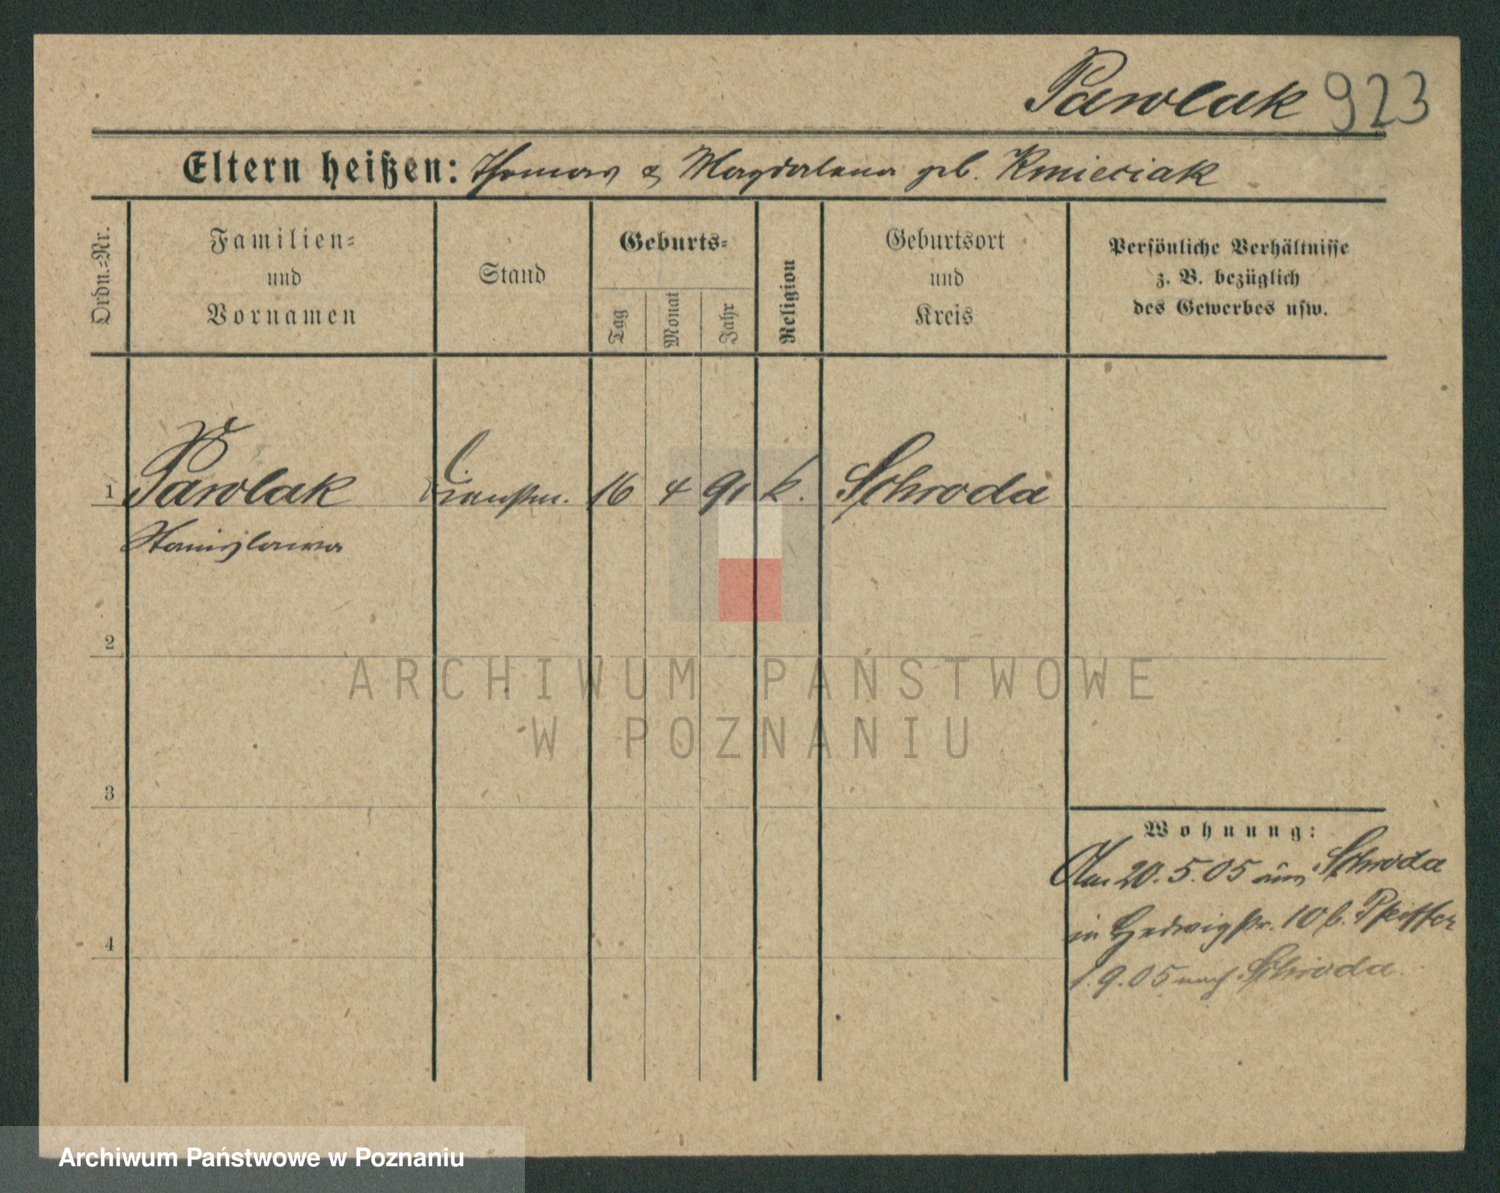 Pawlak 923
Eltern heißen: Thomas & Magdalena geb. Kmieciak
Ordn.-Nr.
Familien-
und
Vornamen
Stand
Geburts-
Tag
Monat
Jahr
Religion
Geburtsort
und
Kreis
Persönliche Verhältnisse
z. B. bezüglich
des Gewerbes usw.
1 Pawlak Dienstm. 16 4 91 k. Schroda
Stanislawa
2
3
4
ARCHIWUM PAŃSTWOWE
W POZNANIU
Wohnung:
Am 20.5.05 aus Schroda
in Hedwigstr. 10 b. Pfeiffer
1.9.05 nach Schroda
Archiwum Państwowe w Poznaniu